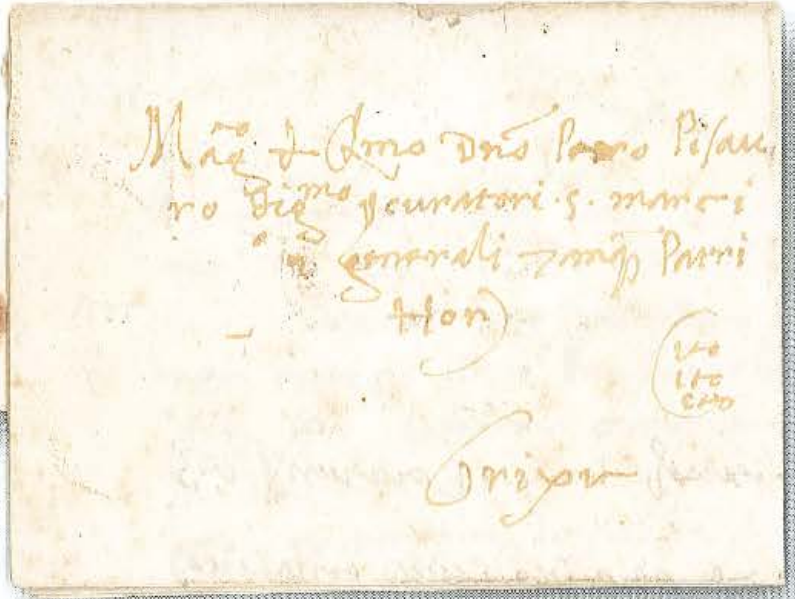 Mag.co & Cl.mo Dno Paulo Pisau
ro dig.mo pcuratori . S. marci
generali tamq Patri
Hon)
ito
ito
cito
Brixie